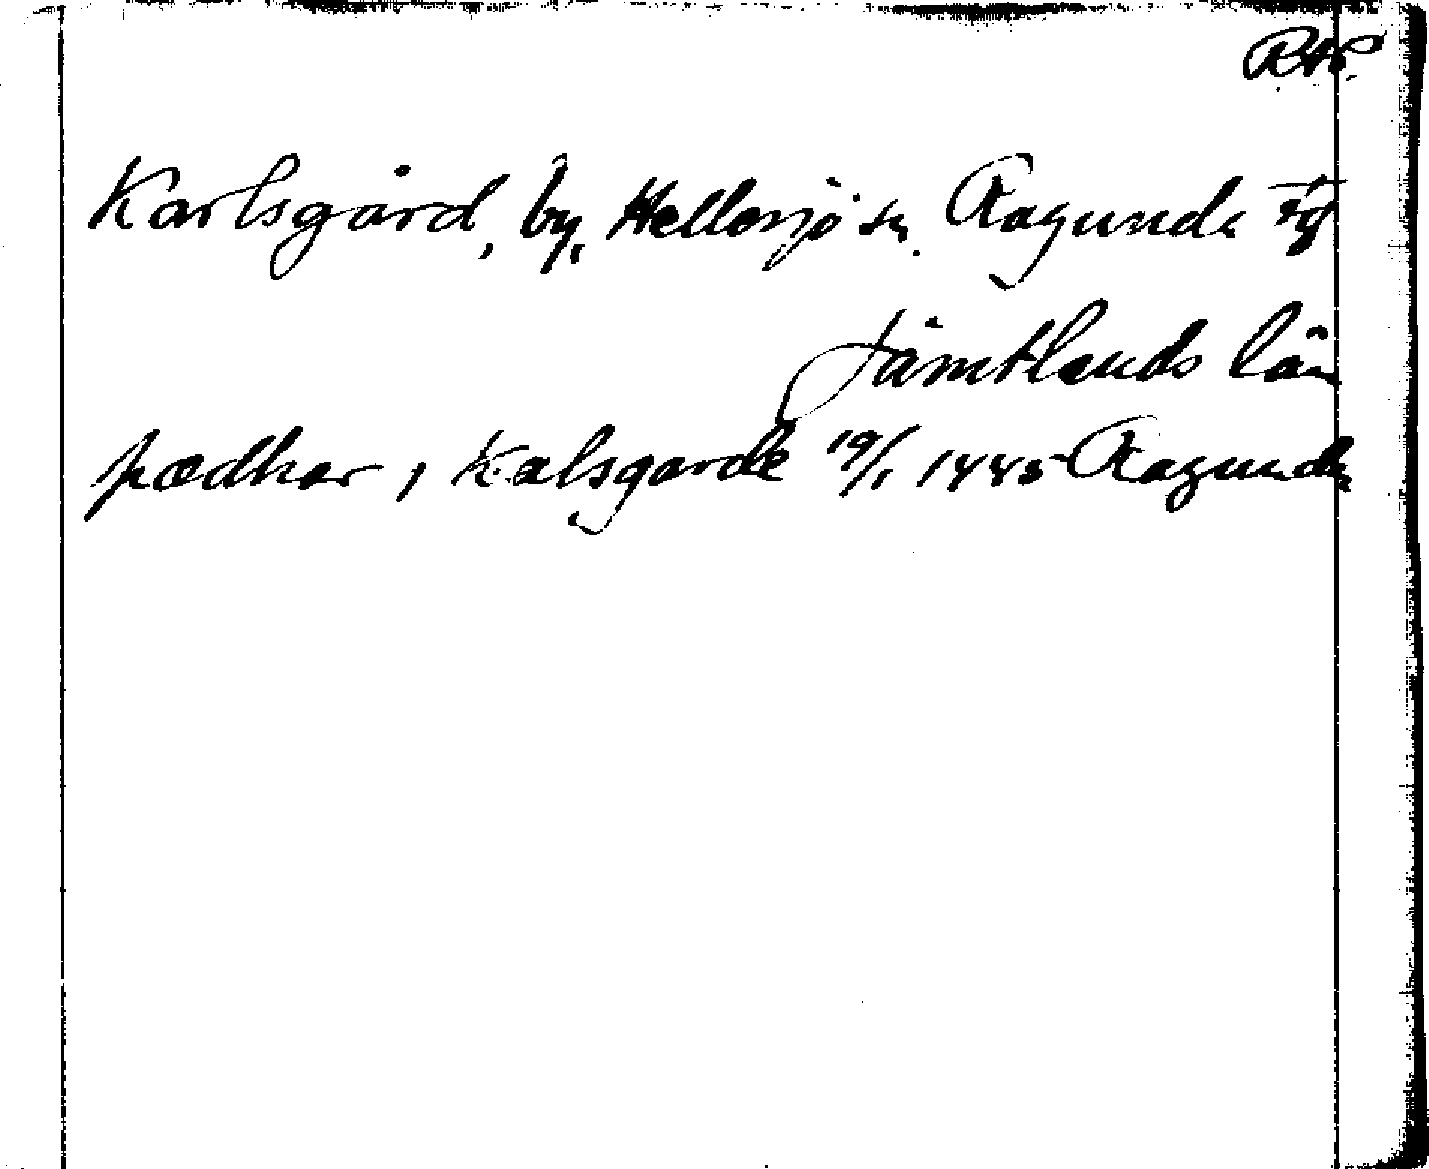 RAP.
Karlsgård, by, Hellesjö sn. Ragunda tg
Jämtlands län
pædhar, i Kalsgarde 19/1 1445 Ragunda